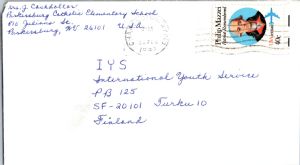 Mrs. J. Candoller
Parkersburg Catholic Elementary School
810 Juliana St.
Parkersburg, WV 26101 U.S.A.
Philip Mazzei
40c
IYS
International Youth Service
PB 125
SF-20101 Turku 10
Finland